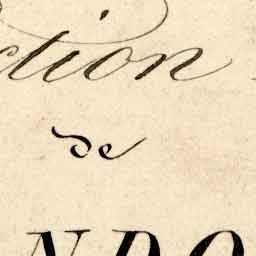 ction
de
NDO